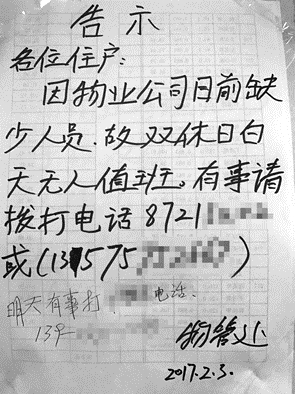 告示
各位住户:
因物业公司日前缺
少人员.故双休日白
天无人值班。有事请
拨打电话8721
或(13575)
明天有事打 电话.
13
物管处
2017.2.3.